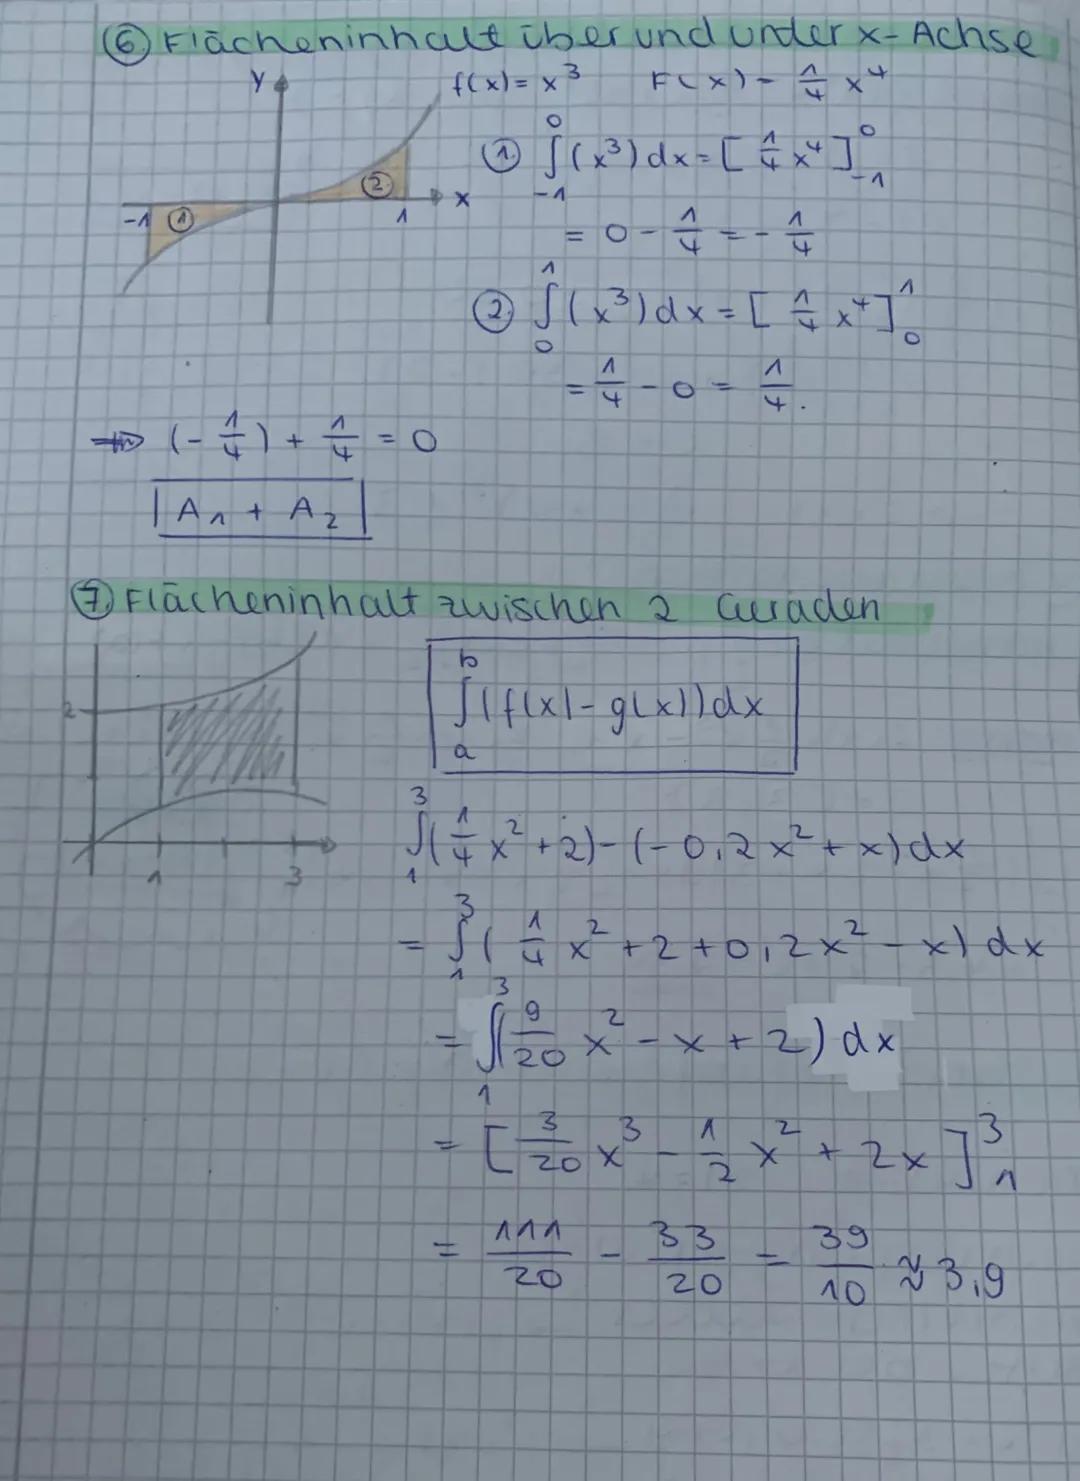 ⑥ Flächeninhalt über und under x-Achse
y
f(x) = x³ F(x) = 1/4 x⁴
① ∫₋₁⁰ (x³) dx = [1/4 x⁴]₋₁⁰
-1 ① ② 1 x
= 0 - 1/4 = - 1/4
② ∫₀¹ (x³) dx = [1/4 x⁴]₀¹
= 1/4 - 0 = 1/4.
⇒ (- 1/4) + 1/4 = 0
|A₁ + A₂|
⑦ Flächeninhalt zwischen 2 Geraden
∫ₐᵇ (f(x) - g(x)) dx
2
1 3
∫₁³ (1/4 x² + 2) - (-0,2x² + x) dx
= ∫₁³ (1/4 x² + 2 + 0,2x² - x) dx
= ∫₁³ (9/20 x² - x + 2) dx
= [3/20 x³ - 1/2 x² + 2x]₁³
= 111/20 - 33/20 = 39/10 ≈ 3,9